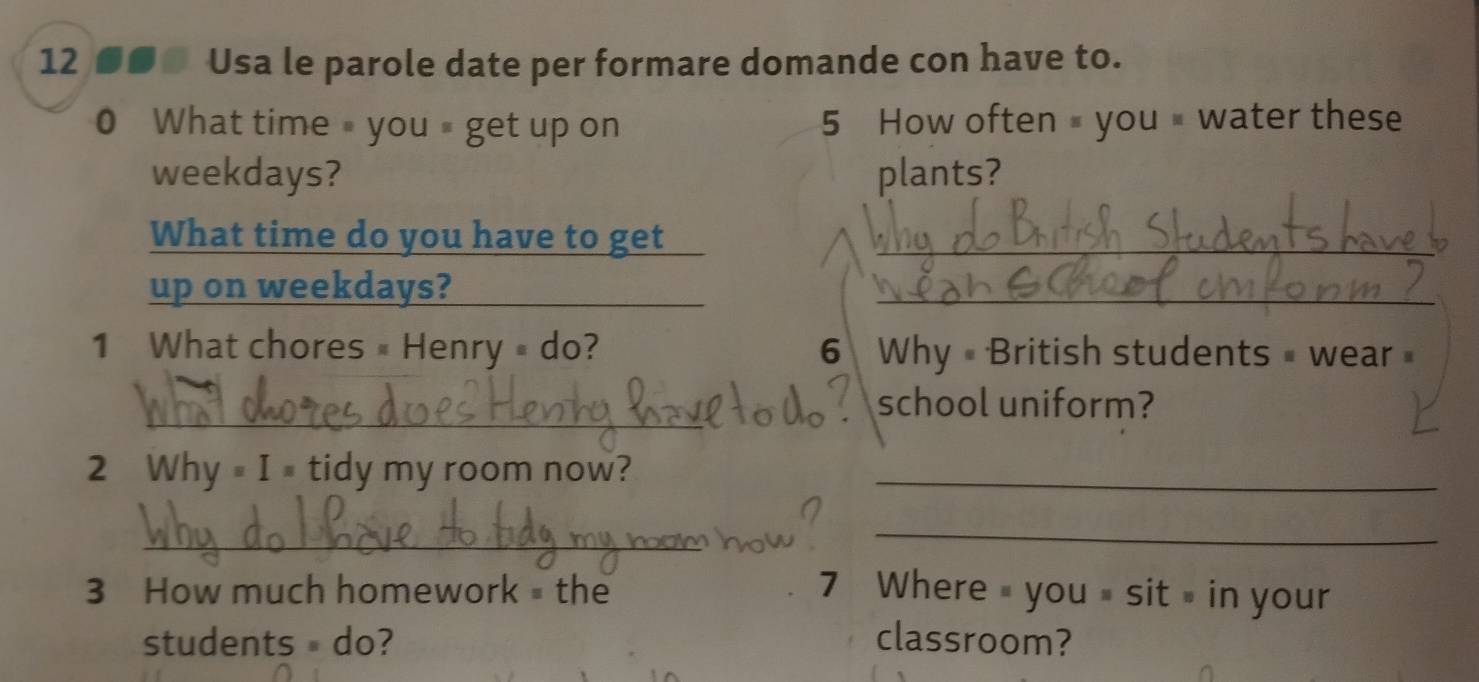 12 Usa le parole date per formare domande con have to.
0 What time ▪ you ▪ get up on
weekdays?
What time do you have to get
up on weekdays?
1 What chores ▪ Henry ▪ do?
What chores does Henry have to do?
2 Why ▪ I ▪ tidy my room now?
Why do I have to tidy my room now?
3 How much homework ▪ the
students ▪ do?
5 How often ▪ you ▪ water these
plants?
Why do British Students have to
wear school uniform?
6 Why ▪ British students ▪ wear ▪
school uniform?
7 Where ▪ you ▪ sit ▪ in your
classroom?